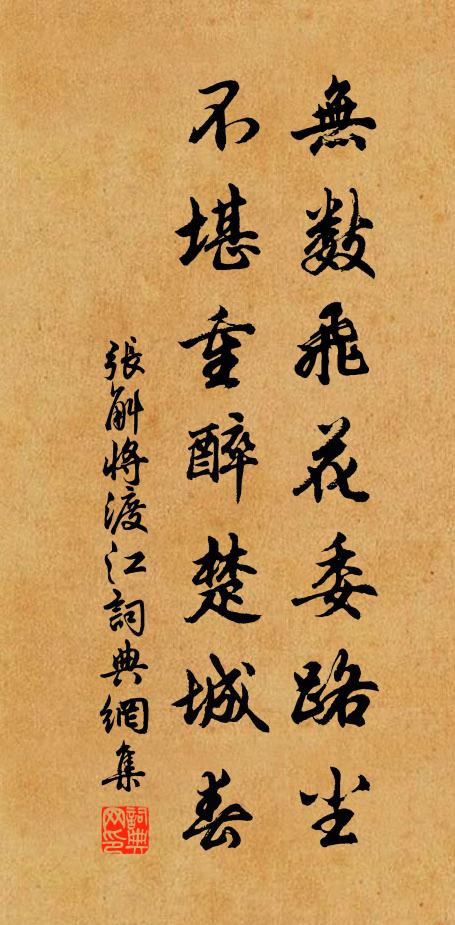 無數飛花委路尘
不堪重醉楚城春
張斛將渡江詞典網集
詞典網印